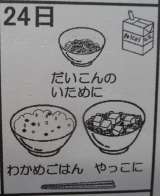 24日
だいこんの
いために
わかめごはん　やっこに